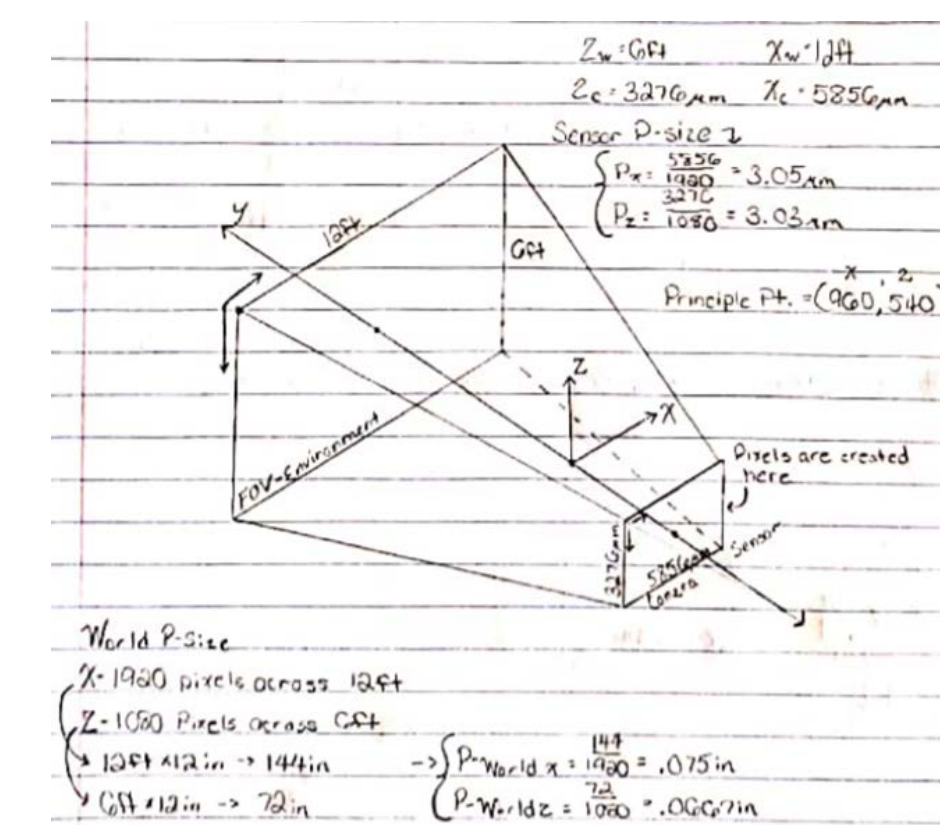 Zw = 6ft Xw = 12ft
Zc = 3276μm Xc = 5856μm
Sensor P-size
Px = 5856/1920 = 3.05μm
Pz = 3276/1080 = 3.03μm
x, z
Principle Pt. = (960, 540
y
12ft
6ft
Z
X
FOV-Environment
Pixels are created
here
Sensor
3276μm
5856μm
Camera
World P-size
X-1920 pixels across 12ft
Z-1080 Pixels across 6ft
12ft x 12in -> 144in -> P-World x = 144/1920 = .075in
6ft x 12in -> 72in P-World z = 72/1080 = .0667in